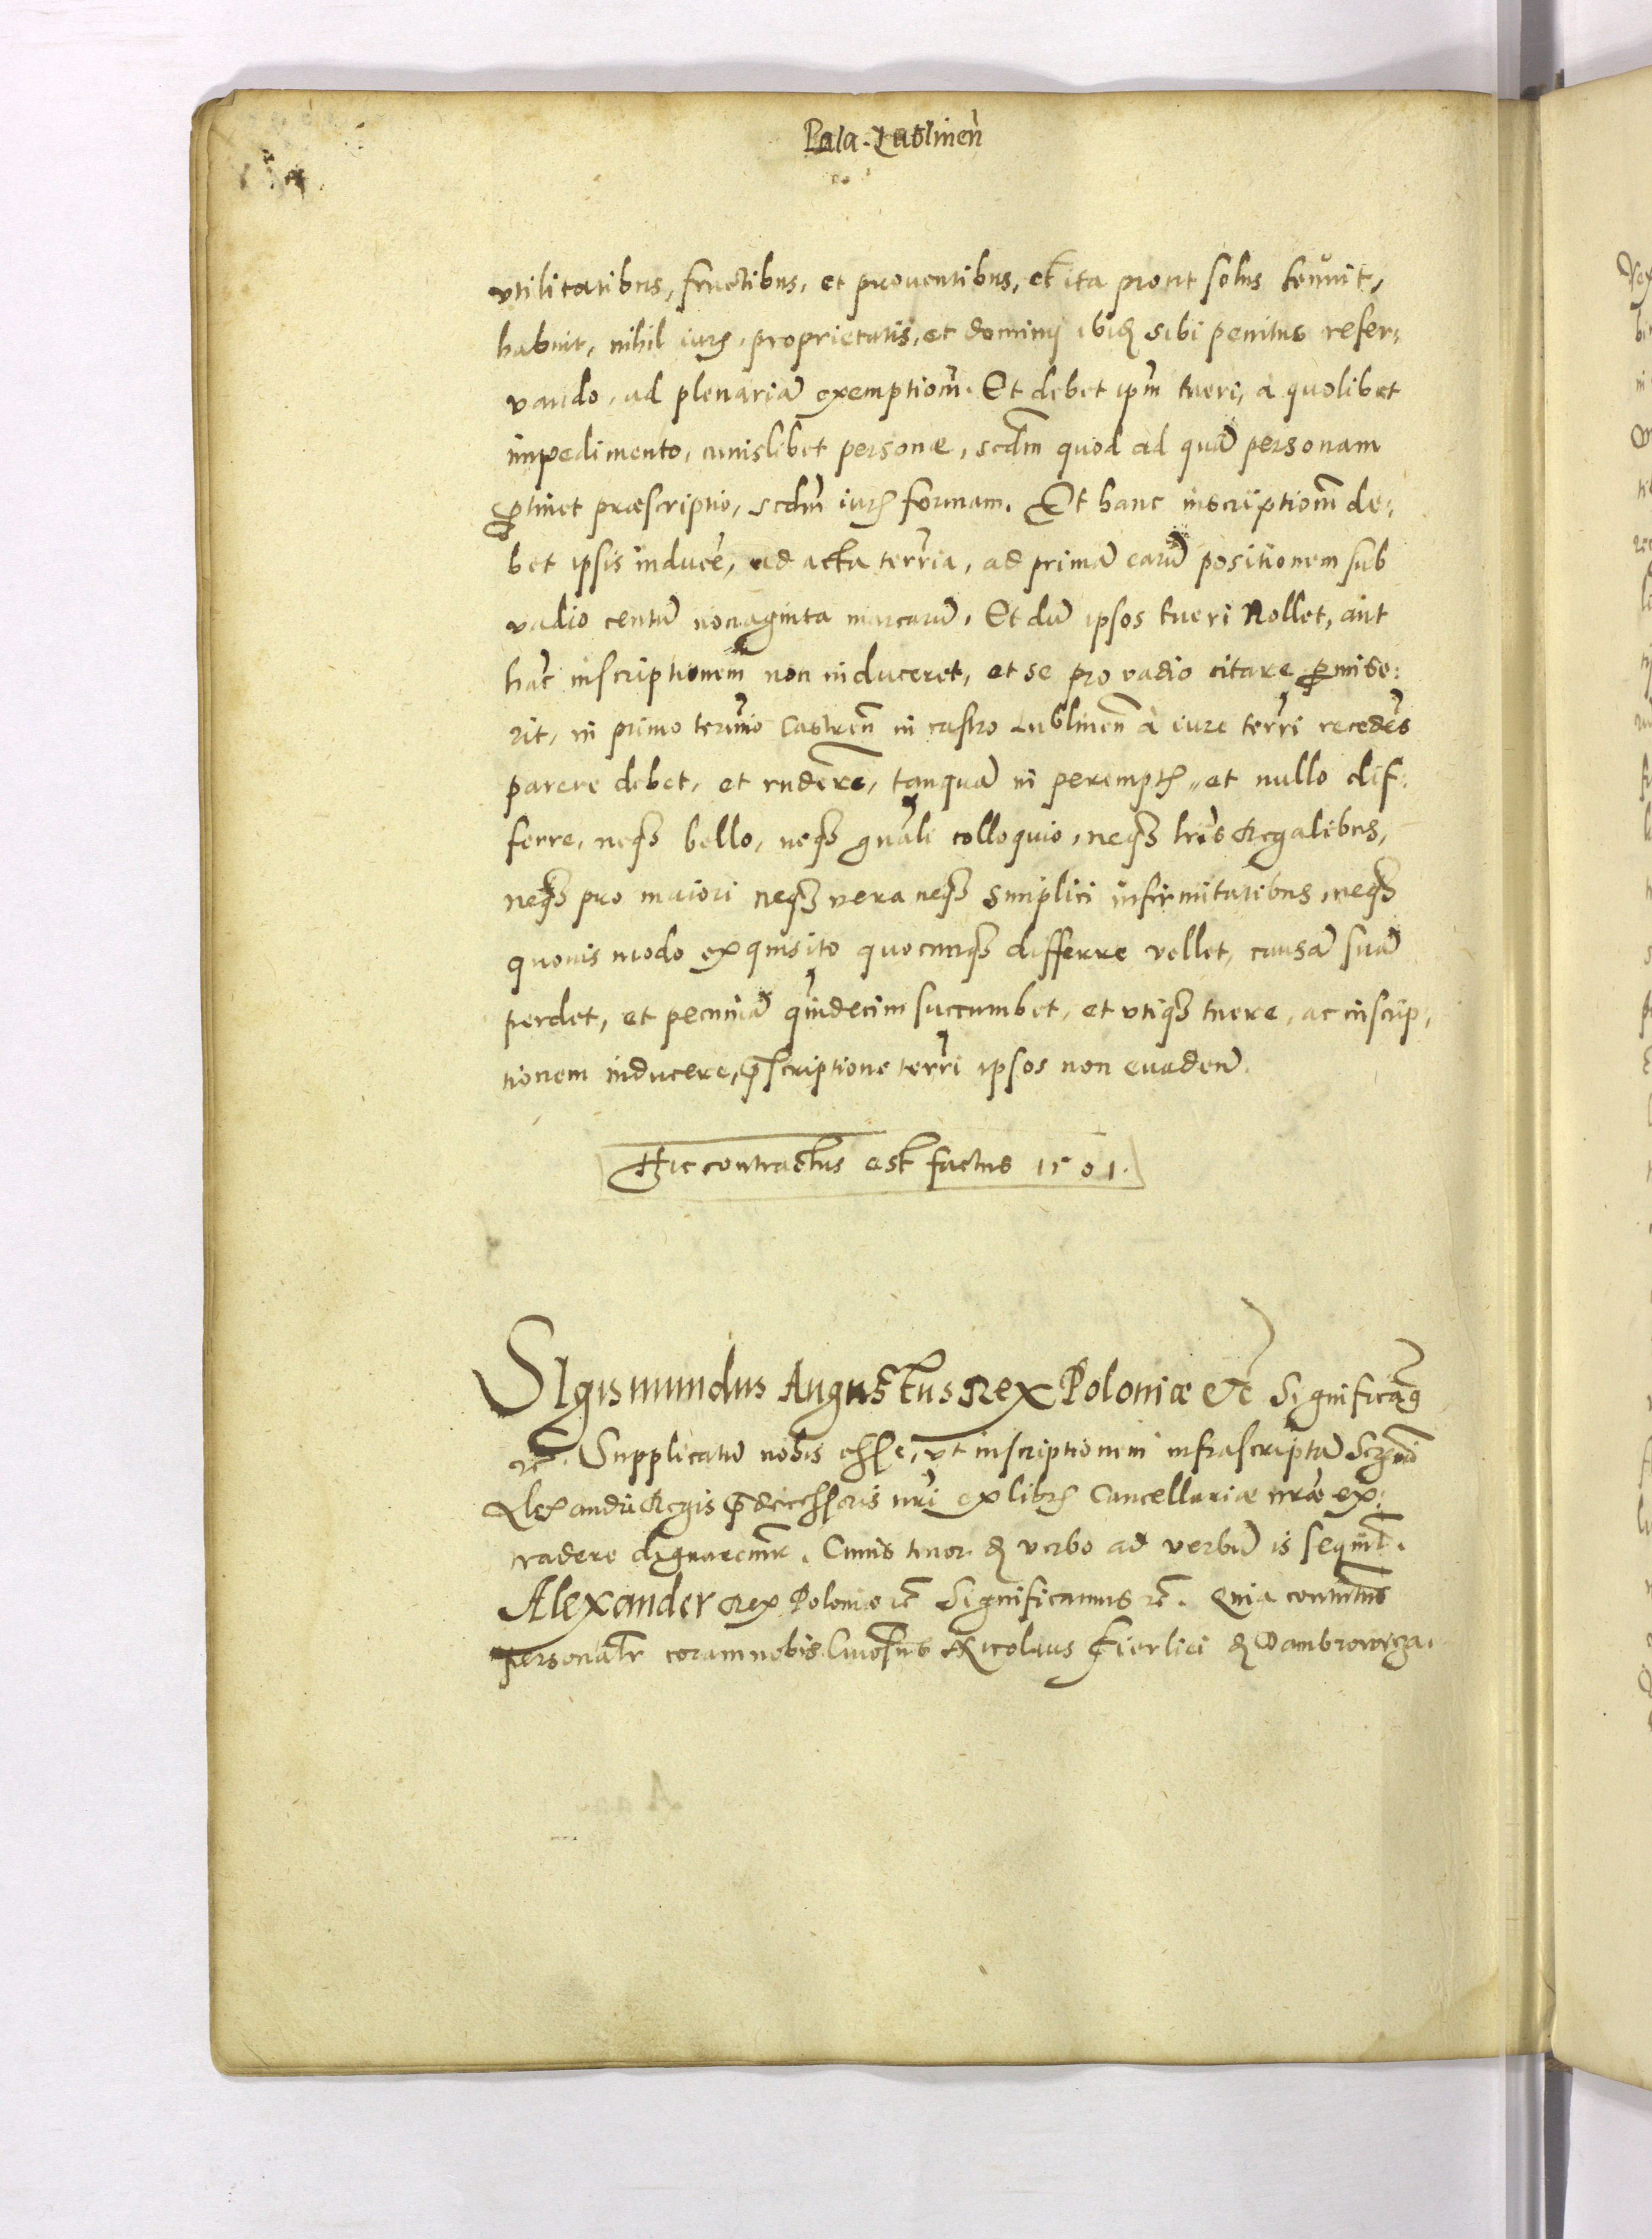 Pala. Lublineñ
vtilitatibus, fructibus, et prouentibus, et ita prout solus tenuit,
habuit, nihil iurꝭ, proprietatis, et dominij ibidē sibi penitus reser,
vando, ad plenariā exemptioēm. Et debet ipm̄ tueri, a quolibet
impedimento, cuiuslibet personæ, scdm̄ quod ad quā personam
ꝑtinet præscriptio, scdm̄ iurꝭ formam. Et hanc inscriptioēm de,
bet ipsis inducēe, ad acta terrīa, ad primā earū positionem sub
vadio centū nonaginta marcarū. Et dū ipsos tueri Nollet, aut
hāc inscriptionem non induceret, et se pro vadio citare ꝑmise,
rit, in primo termīo Castreñ in castro Lublineñ a iure terrī recedēs
parere debet, et rndēre, tanquā in peremptꝭ, et nullo dif,
ferre, neqꝫ bello, neqꝫ gnāli colloquio, neqꝫ lrīs Regalibus,
neqꝫ pro maiori neqꝫ vera neqꝫ simplici infirmitatibus, neqꝫ
quouis modo exquisito quocunqꝫ differre vellet, causā suā
perdet, et pecuniā quīdecim succumbet, et vtiqꝫ tuere, ac inscrip,
tionem inducere, p̄scriptione terrī ipsos non euadeñ.
Hic contractus est factus 1501.
SIgismundus Augustus Rex Poloniæ etc̄ Significamꝰ
etc̄. Supplicatū nobis esse, vt inscriptionem infrascriptā
Alexandri Regis p̄decessoris nrī ex librꝭ Cancellariæ nrāe ex,
tradere dignaremur. Cuius tenor de verbo ad verbū is sequit̄.
Alexander Rex Poloniæ etc̄ Significamus etc̄. Quia constitutus
personalr̄ coram nobis Nicolaus Fierliei de Dambrowycza.